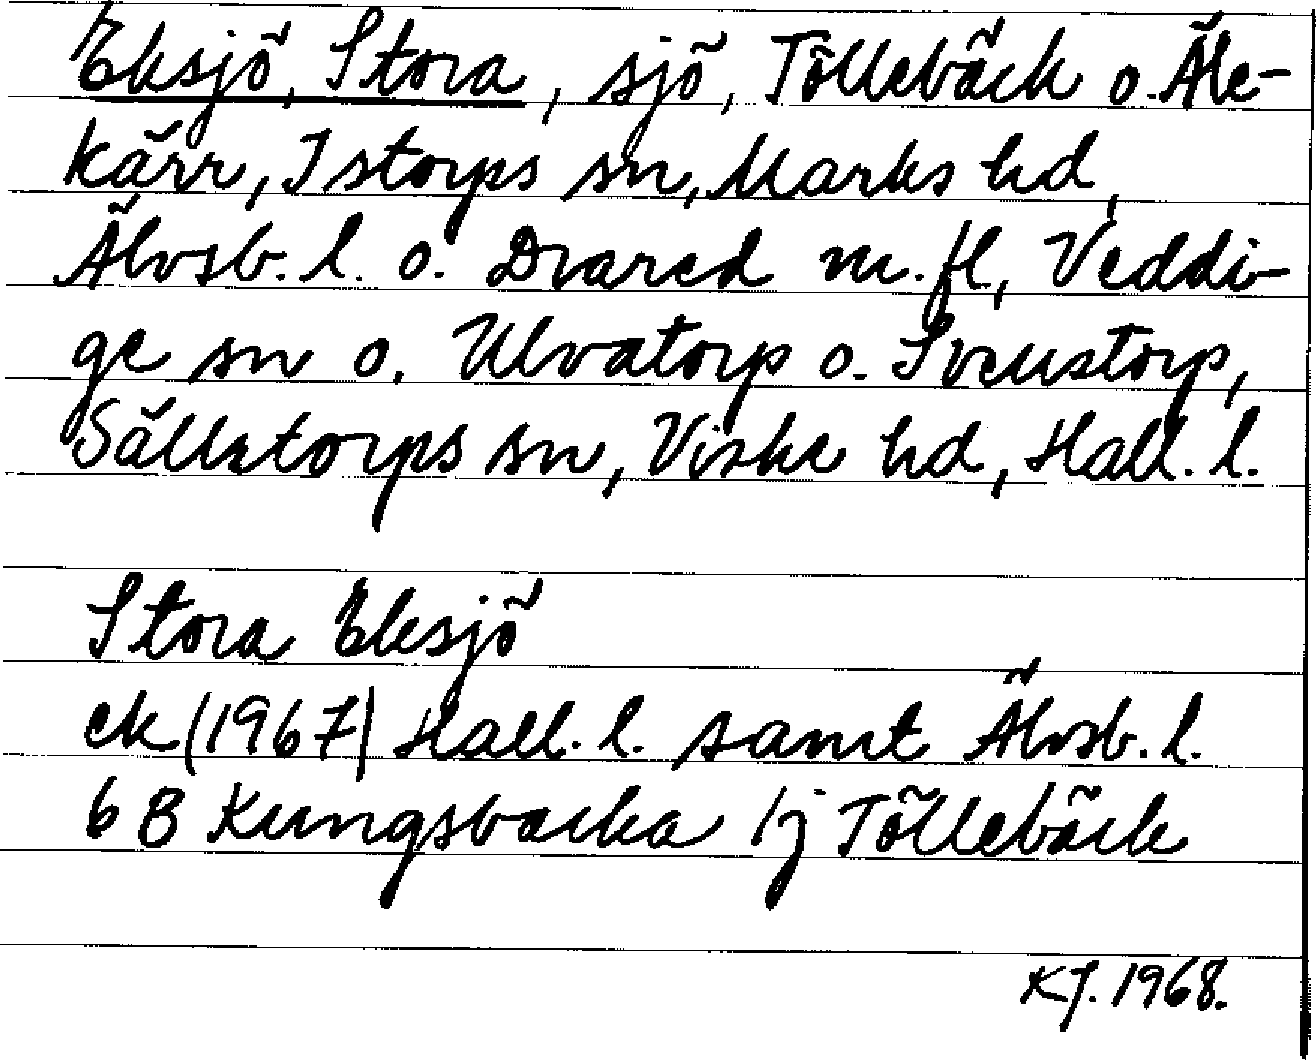 Eksjö, Stora, sjö, Töllebäck o. Äle-
kärr, Istorps sn, Marks hd,
Älvsb. l. o. Drared m. fl, Veddi-
ge sn o. Ulvatorp o. Svenstorp,
Sällstorps sn, Viske hd, Hall. l.
Stora Eksjö
ek (1967) Hall. l. samt Älvsb. l.
6B Kungsbacka 1j Töllebäck
KJ. 1968.